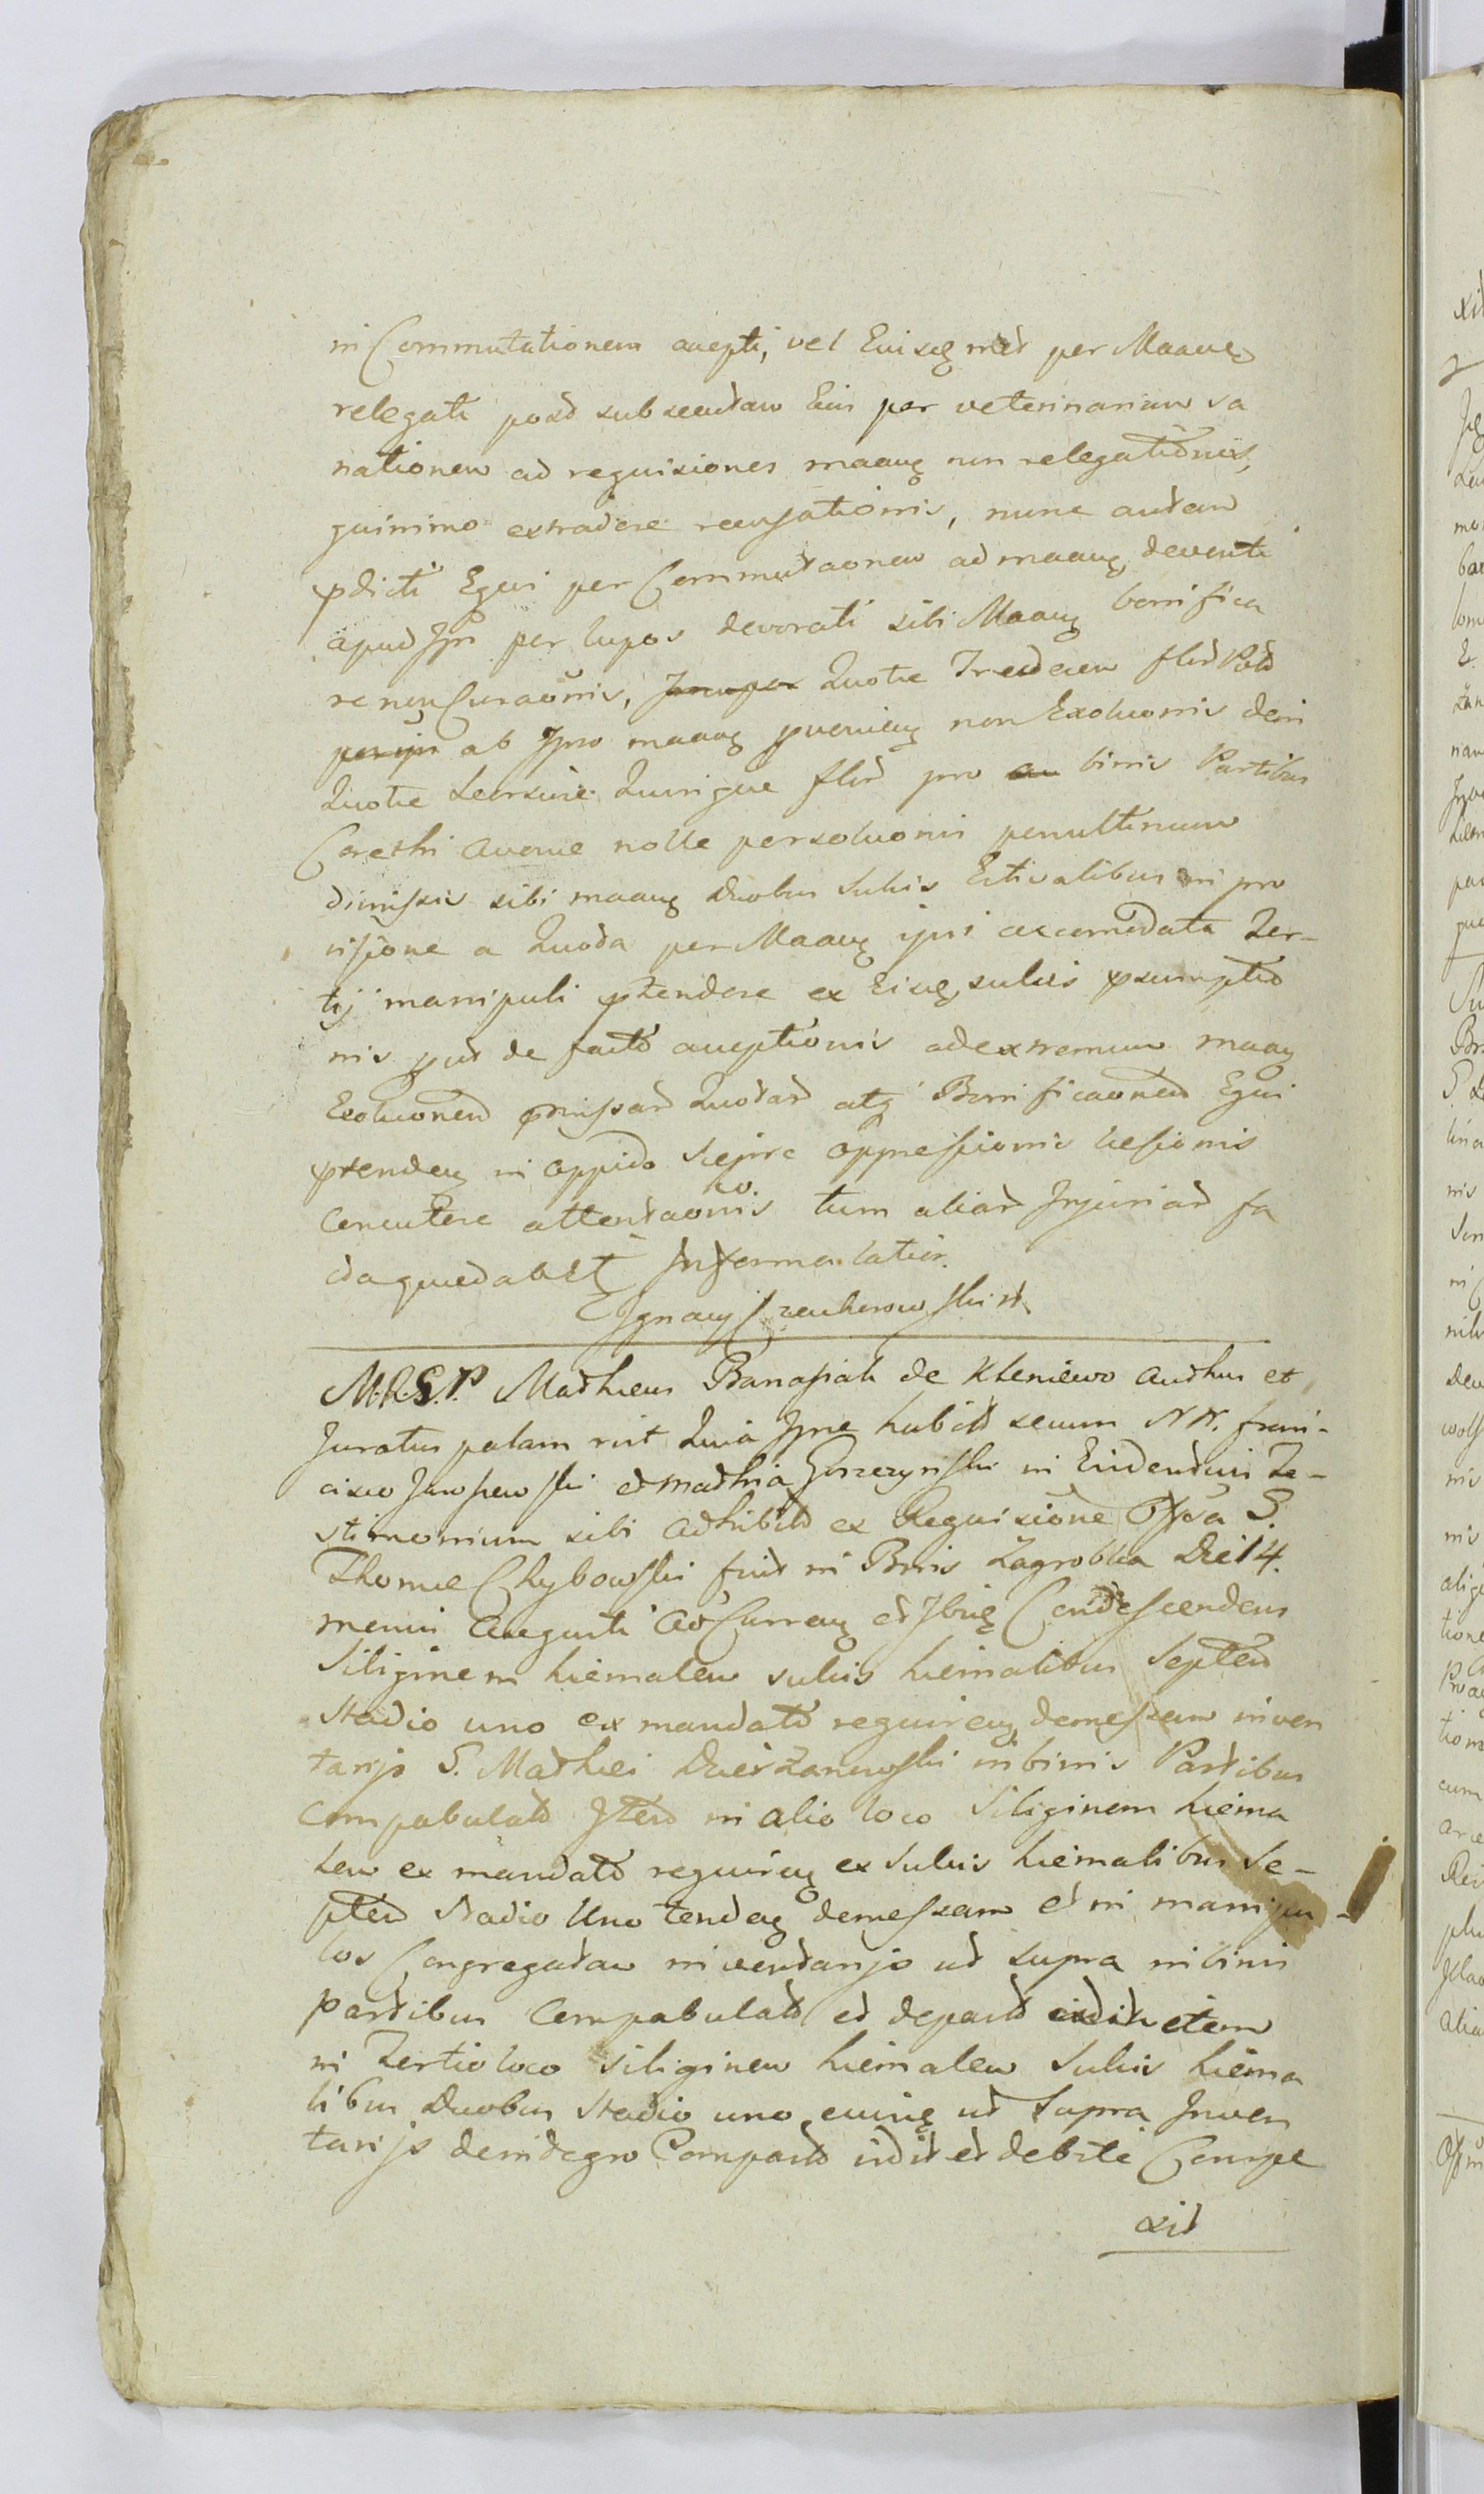 in Commutationem accepti, vel Eiusq met per Maaug
relegati post subsecutam Eius per veterinariam sa
nationem ad requisiones maaug non relegationis,
quinimo extradere recusationis, nunc autem
pdicti Equi per Commutaonem ad maaug deventi
apud Jps per lupos devorati sibi Maaug bonifica
re non Curaonis, Quotae Tredecem flor Pol
ab Jpso maaug pvenieng non Exoluonis deni
Quotae Seorsive Quinque flor pro binis Partibus
Corethi avenae nolle persoluonis penultimum
dimissis sibi maaug Duobus Sulcis Estivalibus in pro
visione a Quota per Maaug ipsi accomodata Ter-
tij manipuli ptendere ex Eiusq sulcis psumptio
nis put de facto acceptionis ad extremum maaug
Exoluonem pmissar Quotar atq Bonificaonem Equi
ptendeng in oppido Sierpc oppressionis lesionis
Concutere attentaonis tum aliar Injuriar fa
da quedabet Informa latior.
Ignacy
M.R.G.P. Matheus Banasiak de Kleniewo Authus et
Juratus palam rint Quia Jpse habito secum NN. fran-
cisco et Mathia Gorczynski in Evidentius Te-
stimonium sibi adhibito ex Requisione G.
Thomae Chybowski fuit in Bonis Zagrobka Die 14.
mensis Augusti Ao Curreng et Ibiq Condescendens
Siliginem hiemalem sulcis hiemalibus Septem
Stadio uno ex mandato requireng demessam inven
tarijs G. Mathei Dzierzanowski in binis Partibus
Compabulato Item in alio loco Siliginem hiema
lem ex mandato requireng ex Sulcis hiemalibus Se-
ptem Stadio Uno tendeng demessam et in manipu-
los Congregatam inventarijs ut supra in binis
Partibus Compabulato et depasto vidit etem
in Tertio loco siliginem hiemalem Sulcis hiema
libus Duobus Stadio uno euinq ut Supra Inven
tarijs de integro Compasto vidit et debite Conspe
xit